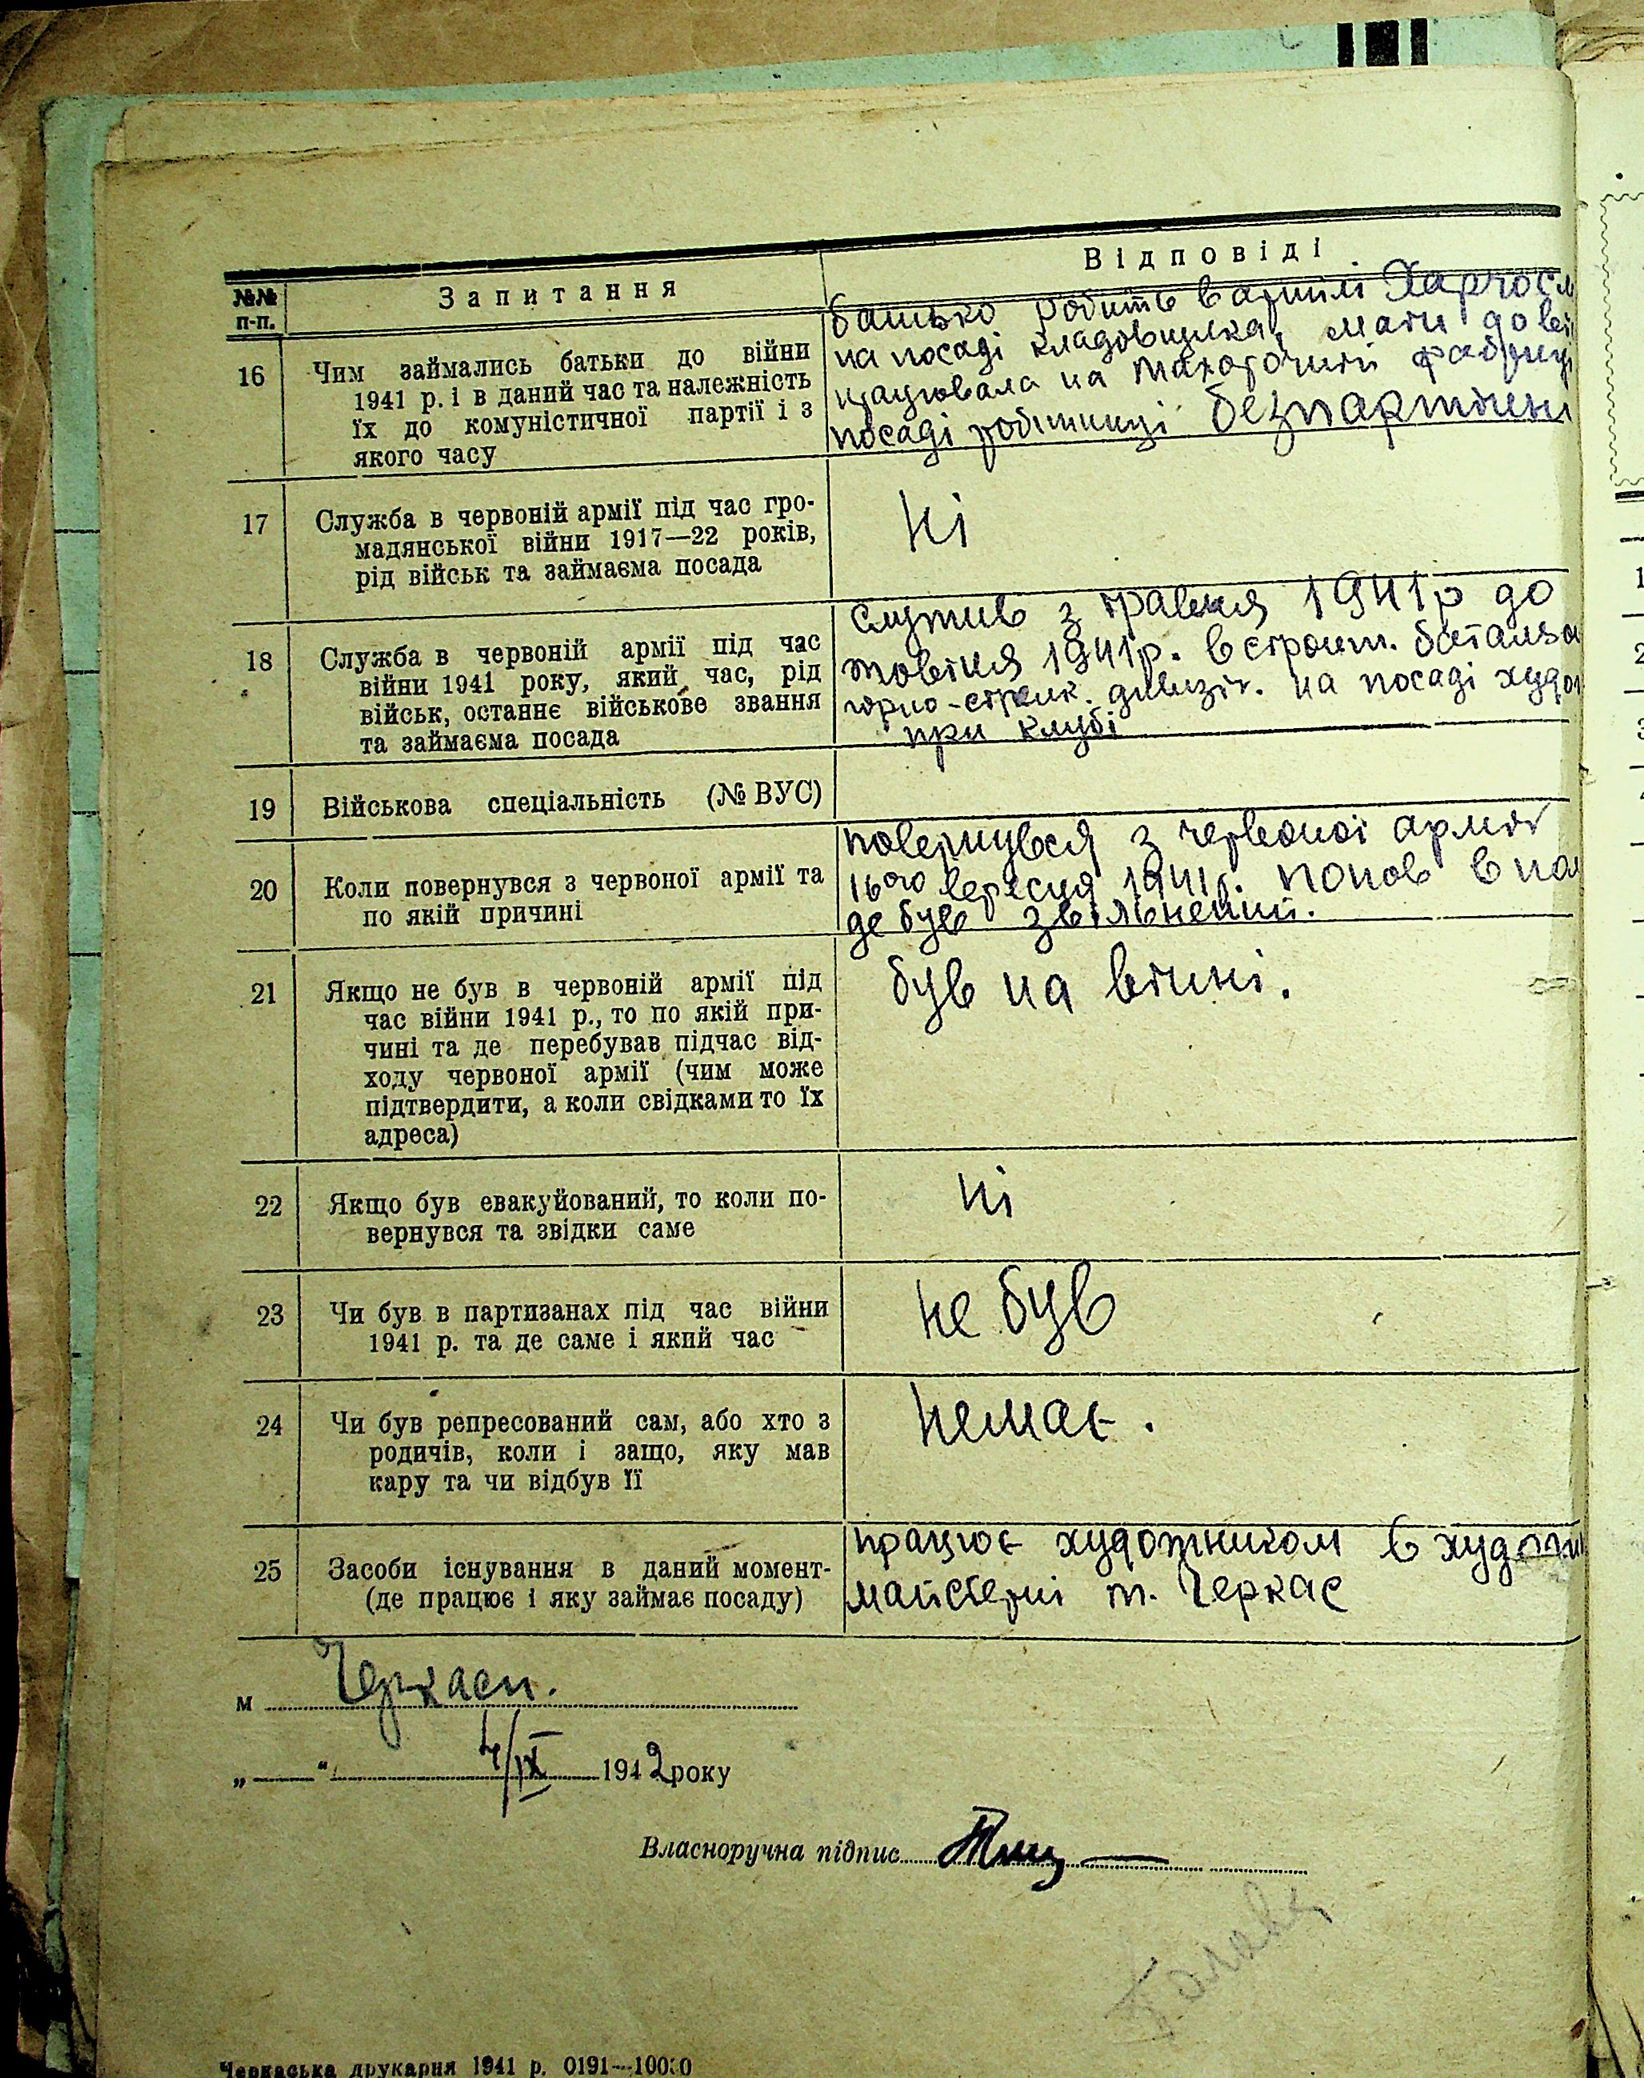 №№ п-п.
Запитання
Відповіді
16
Чим займались батьки до війни
1941 р. і в даний час та належність
їх до комуністичної партії і з
якого часу
батько робить в армілі Харчос
на посаді кладовщика, мати до вій
працювала на махорочній фабриці
посаді робітниці безпартійні
17
Служба в червоній армії під час гро-
мадянської війни 1917—22 років,
рід військ та займаєма посада
Ні
18
Служба в червоній армії під час
війни 1941 року, який час, рід
військ, останнє військове звання
та займаєма посада
служив з травня 1941р до
жовтня 1941р. в строит. батальо
горно-стрілк. дивізії. на посаді худо
при клубі
19
Військова спеціальність (№ ВУС)
20
Коли повернувся з червоної армії та
по якій причині
повернувся з червоної армії
16ого вересня 1941р. попов в по
де був звільнений.
21
Якщо не був в червоній армії під
час війни 1941 р., то по якій при-
чині та де перебував підчас від-
ходу червоної армії (чим може
підтвердити, а коли свідками то їх
адреса)
був на війні.
22
Якщо був евакуйований, то коли по-
вернувся та звідки саме
ні
23
Чи був в партизанах під час війни
1941 р. та де саме і який час
не був
24
Чи був репресований сам, або хто з
родичів, коли і защо, яку мав
кару та чи відбув її
немає.
25
Засоби існування в даний момент-
(де працює і яку займає посаду)
працює художником в худож
майстерні м. Черкас
м Черкаси.
„ “ 4/IX 1942 року
Власноручна підпис
Черкаська друкарня 1941 р. 0191—10000